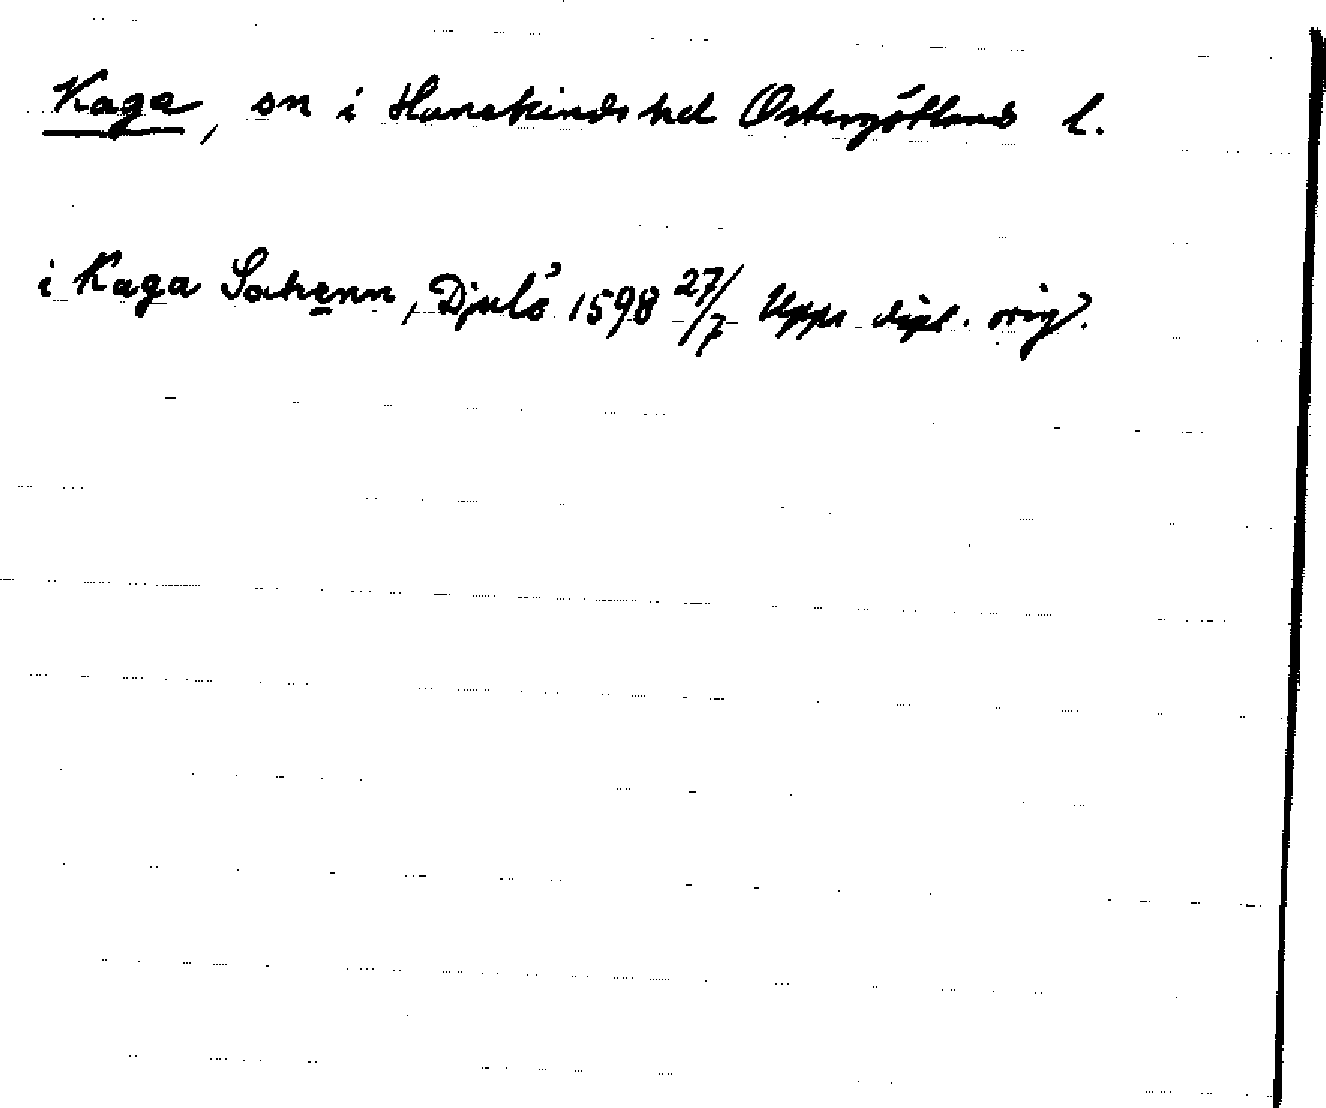 Kaga, sn i Hanekinds hd Östergötlands l.
i Kaga Sokenn, Djulö 1598 27/7 Upps. dipl. orig.